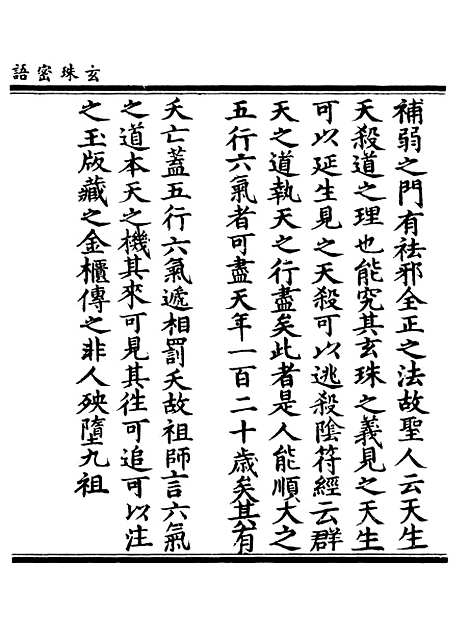 玄珠密語
補弱之門有祛邪全正之法故聖人云天生
天殺道之理也能究其玄珠之義見之天生
可以延生見之天殺可以逃殺陰符經云群
天之道執天之行盡矣此者是人能順大之
五行六氣者可盡天年一百二十歲矣其有
夭亡蓋五行六氣遞相罰夭故祖師言六氣
之道本天之機其來可見其徃可追可以注
之玉版藏之金櫃傳之非人殃墮九祖